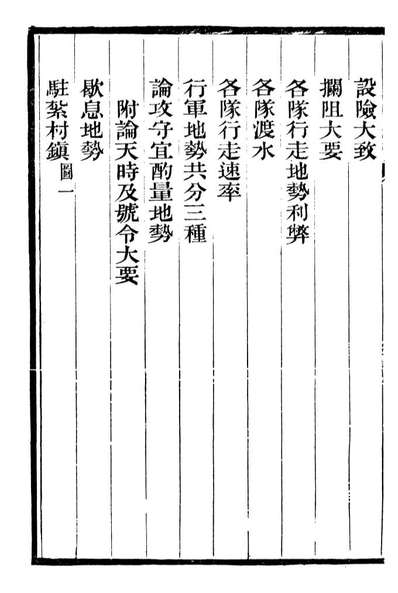 設險大致
攔阻大要
各隊行走地勢利弊
各隊渡水
各隊行走速率
行軍地勢共分三種
論攻守宜酌量地勢
附論天時及號令大要
歇息地勢
駐紮村鎮圖一